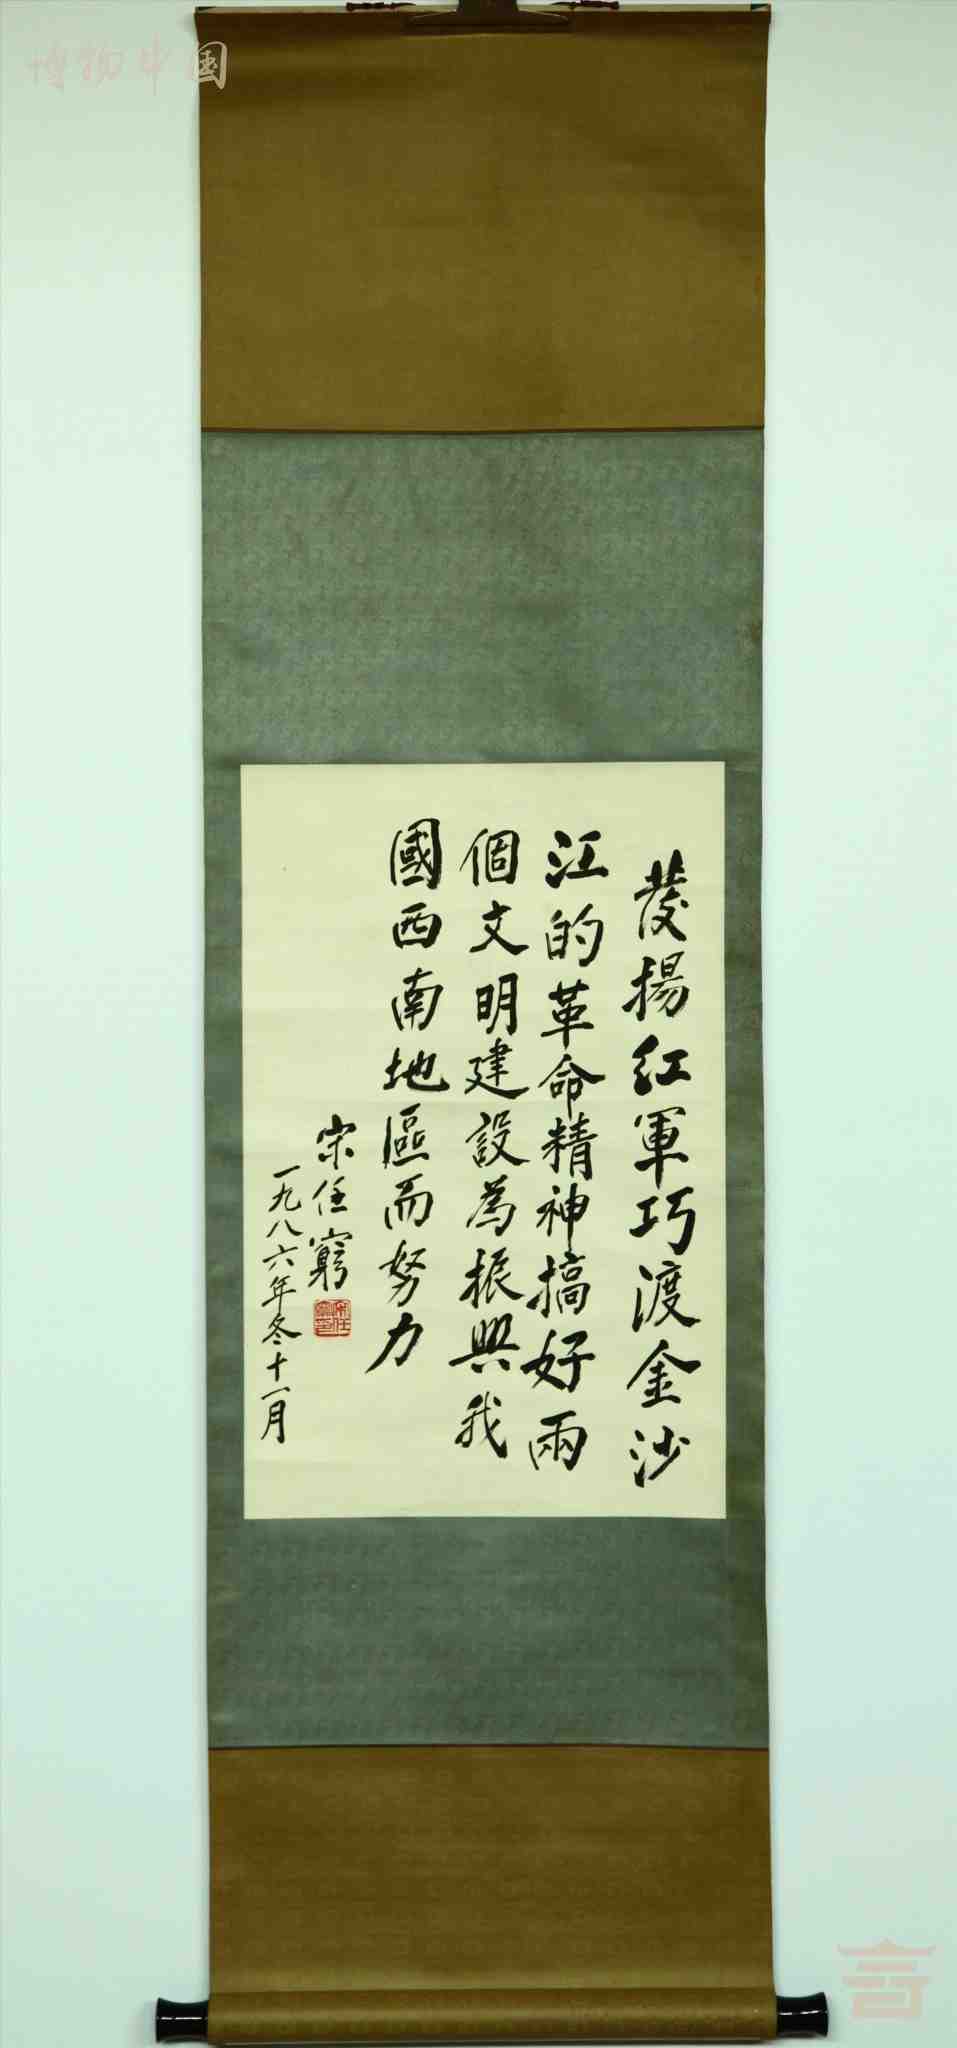 博物中国
發揚红軍巧渡金沙
江的革命精神搞好兩
個文明建設為振興我
國西南地區而努力
宋任窮
一九八六年冬十一月